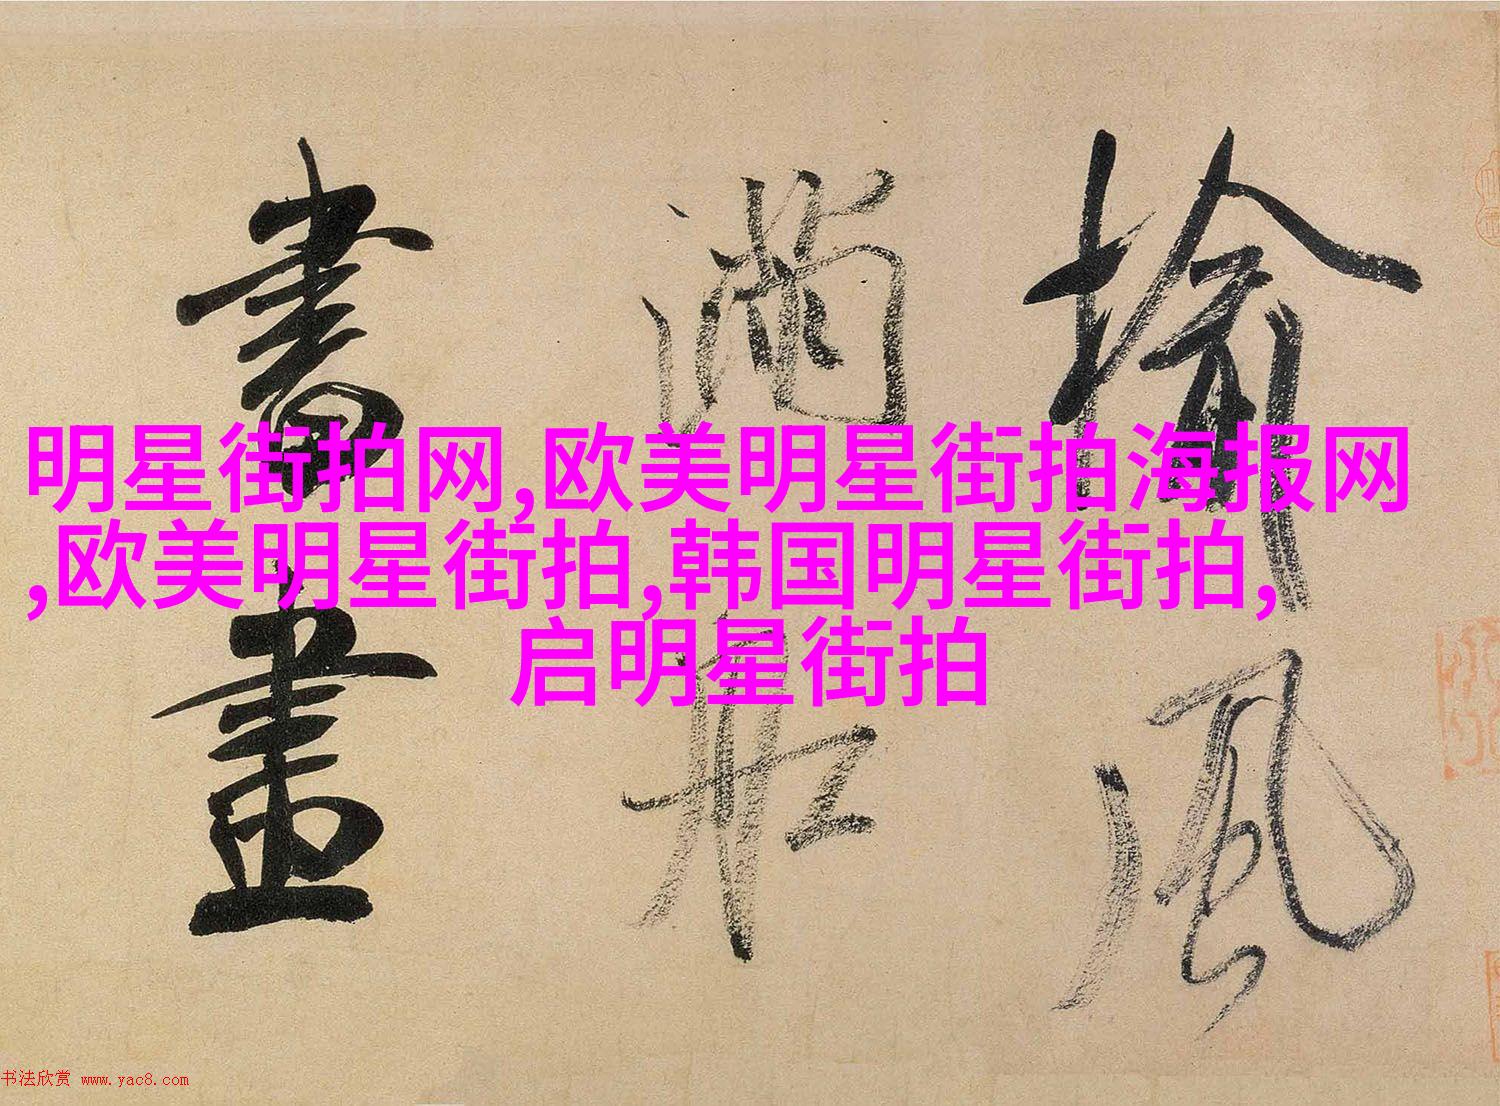 榆風
滿座
書畫
明星街拍网,欧美明星街拍海报网
,欧美明星街拍,韩国明星街拍,
启明星街拍
书法欣赏 www.yac8.com